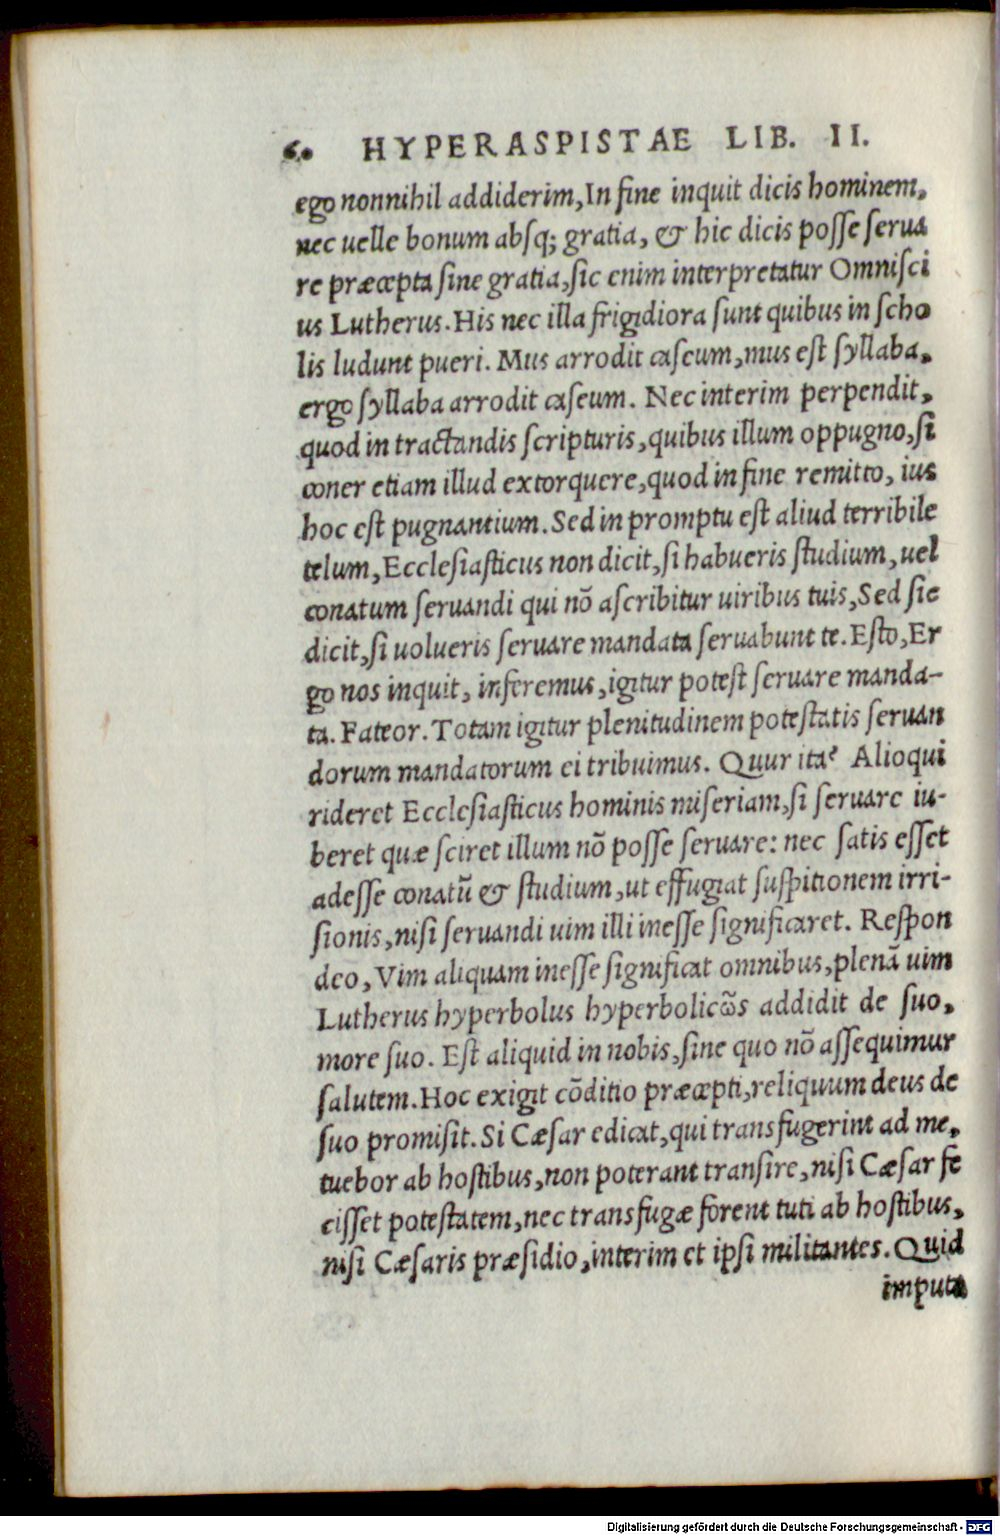 60 HYPERASPISTAE LIB. II.
ego nonnihil addiderim, In fine inquit dicis hominem,
nec uelle bonum absq; gratia, & hic dicis posse serua
re præcepta sine gratia, sic enim interpretatur Omnisci
us Lutherus. His nec illa frigidiora sunt quibus in scho
lis ludunt pueri. Mus arrodit caseum, mus est syllaba,
ergo syllaba arrodit caseum. Nec interim perpendit,
quod in tractandis scripturis, quibus illum oppugno, si
coner etiam illud extorquere, quod in fine remitto, ius
hoc est pugnantium. Sed in promptu est aliud terribile
telum, Ecclesiasticus non dicit, si habueris studium, uel
conatum seruandi qui nō ascribitur uiribus tuis, Sed sic
dicit, si uolueris seruare mandata seruabunt te. Esto, Er
go nos inquit, inferemus, igitur potest seruare manda-
ta. Fateor. Totam igitur plenitudinem potestatis seruan
dorum mandatorum ei tribuimus. Quur ita? Alioqui
rideret Ecclesiasticus hominis miseriam, si seruare iu-
beret quæ sciret illum nō posse seruare: nec satis esset
adesse conatū & studium, ut effugiat suspitionem irri-
sionis, nisi seruandi uim illi inesse significaret. Respon
deo, Vim aliquam inesse significat omnibus, plenā uim
Lutherus hyperbolus hyperbolicῶs addidit de suo,
more suo. Est aliquid in nobis, sine quo nō assequimur
salutem. Hoc exigit cōditio præcepti, reliquum deus de
suo promisit. Si Cæsar edicat, qui transfugerint ad me,
tuebor ab hostibus, non poterant transire, nisi Cæsar fe
cisset potestatem, nec transfugæ forent tuti ab hostibus,
nisi Cæsaris præsidio, interim et ipsi militantes. Quid
imputa
Digitalisierung gefördert durch die Deutsche Forschungsgemeinschaft - DFG